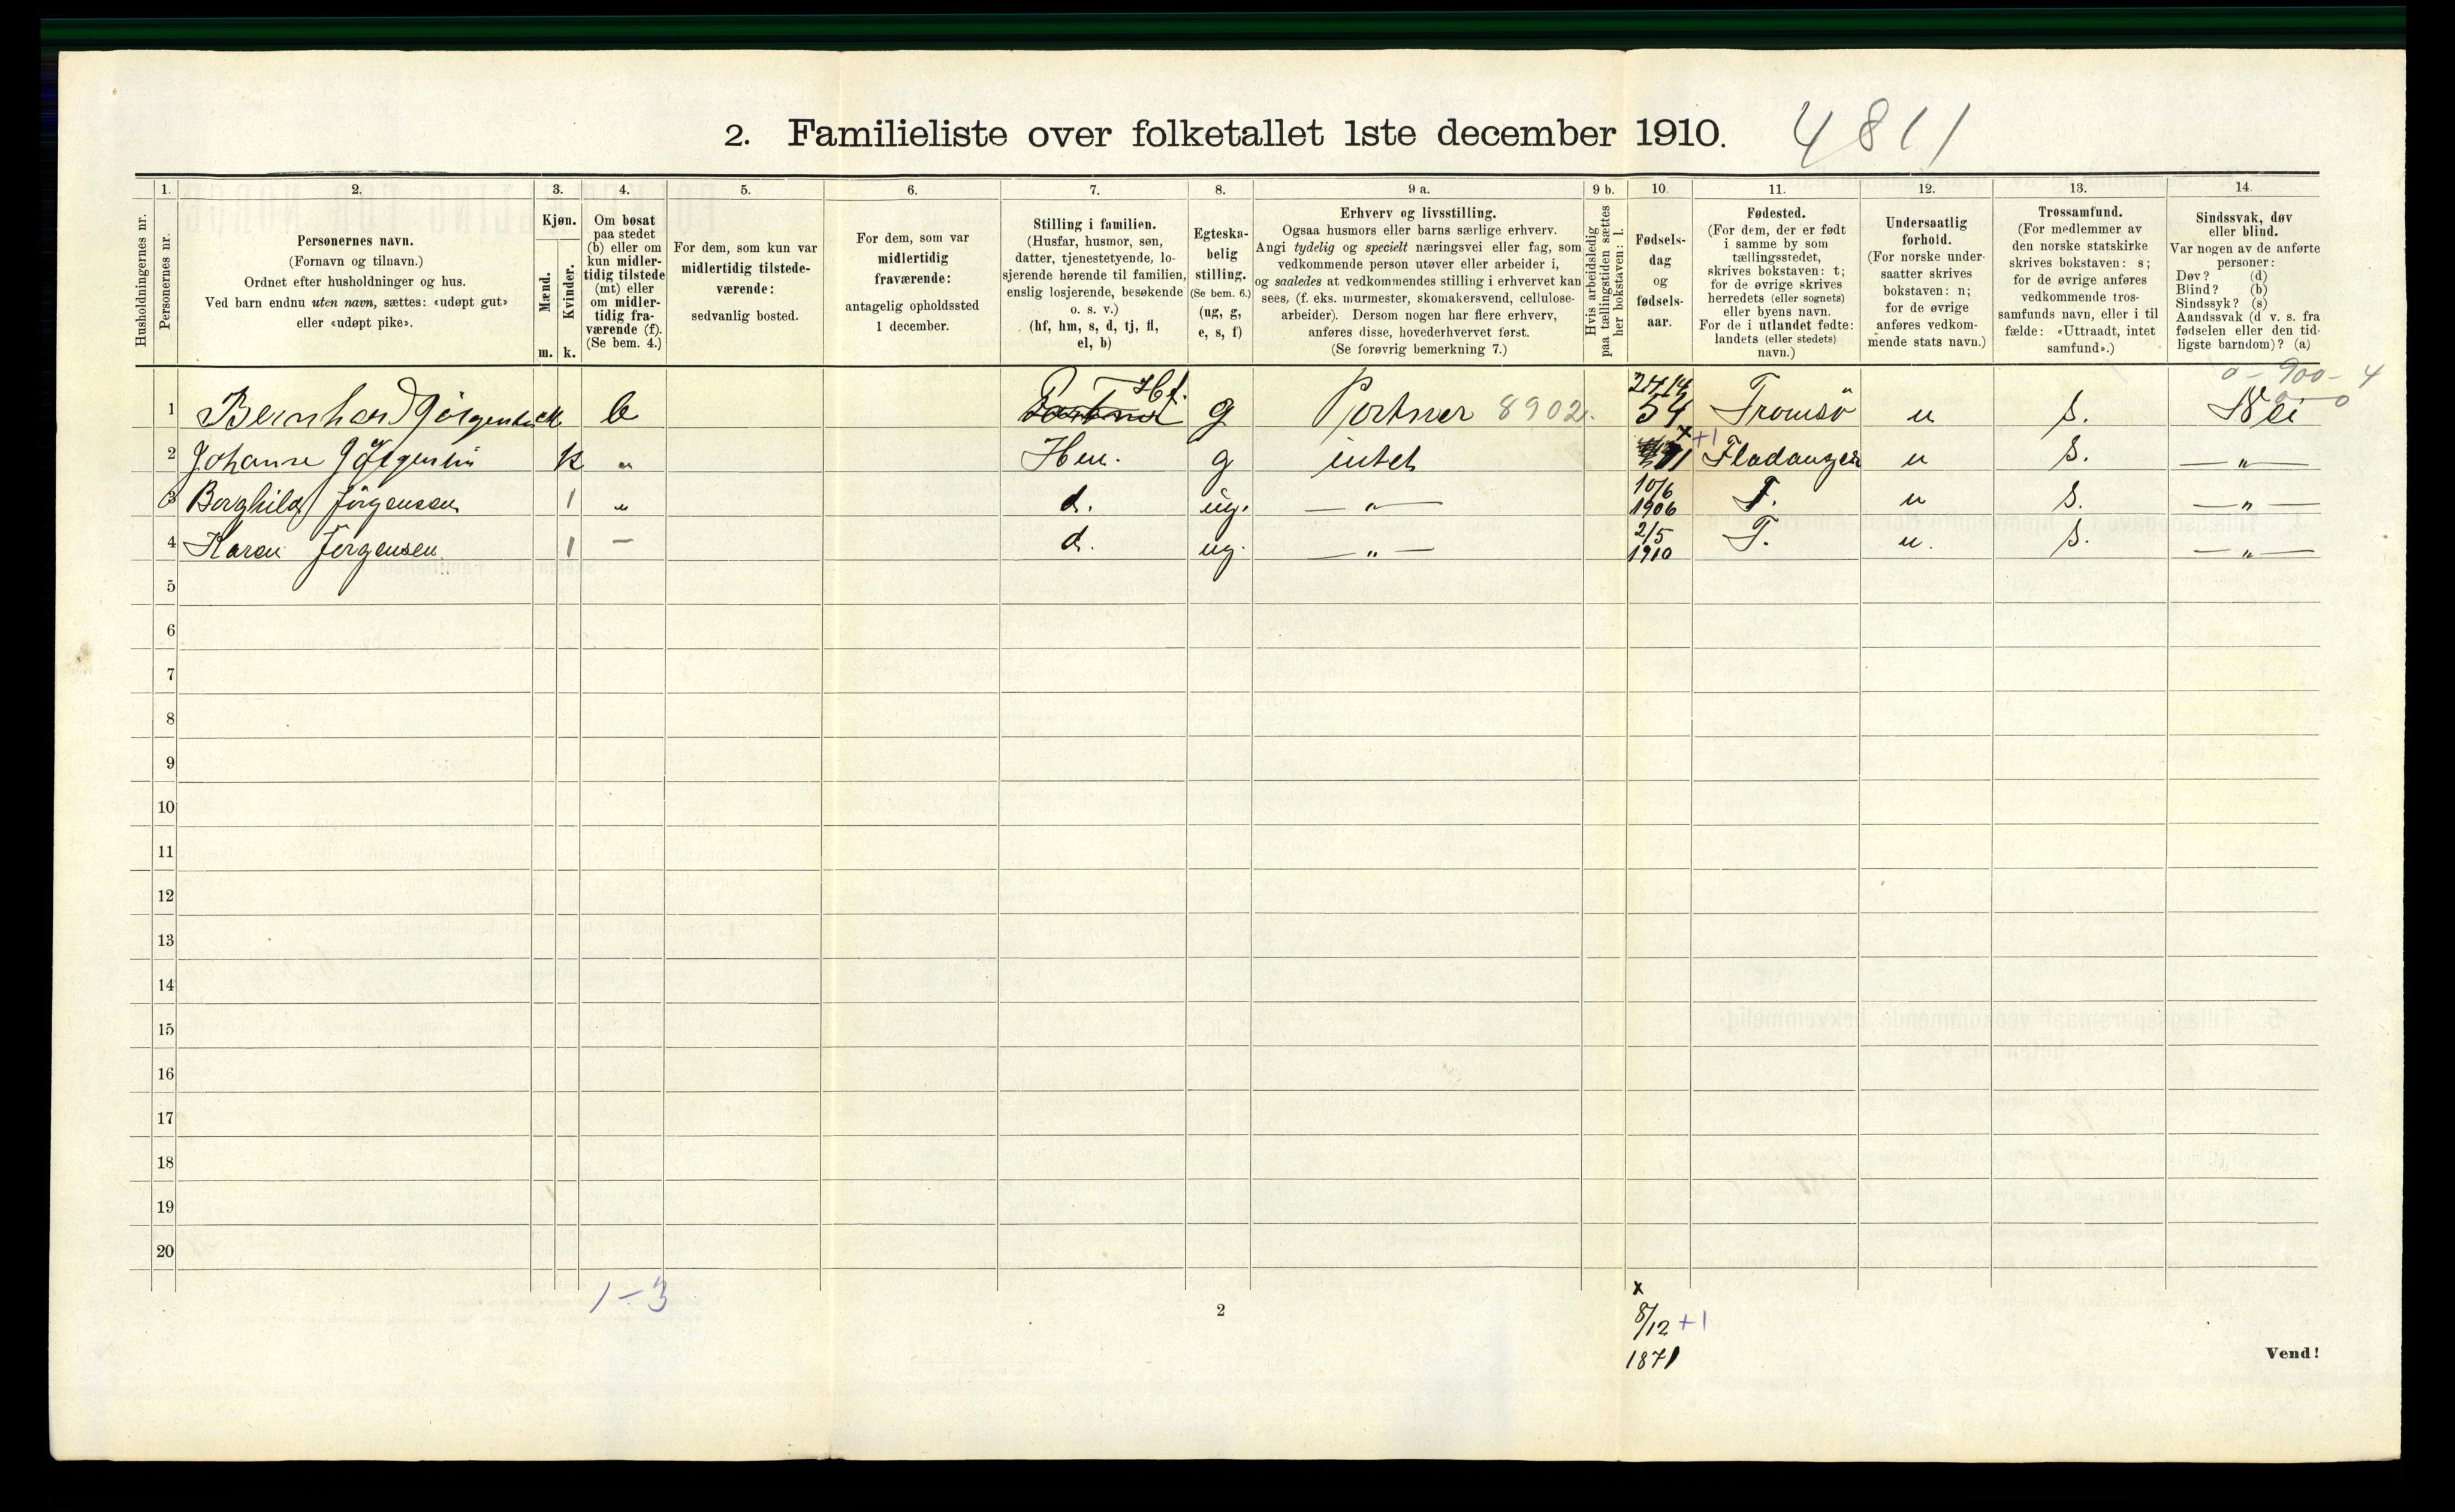 2. Familieliste over folketallet 1ste december 1910. 4811
Husholdningernes nr.
1.
Personernes nr.
2.
Personernes navn.
(Fornavn og tilnavn.)
Ordnet efter husholdninger og hus.
Ved barn endnu uten navn, sættes: «udøpt gut»
eller «udøpt pike».
3.
Kjøn.
Mænd.
Kvinder.
m. k.
4.
Om bosat
paa stedet
(b) eller om
kun midler-
tidig tilstede
(mt) eller
om midler-
tidig fra-
værende (f).
(Se bem. 4.)
5.
For dem, som kun var
midlertidig tilstede-
værende:
sedvanlig bosted.
6.
For dem, som var
midlertidig
fraværende:
antagelig opholdssted
1 december.
7.
Stilling i familien.
(Husfar, husmor, søn,
datter, tjenestetyende, lo-
sjerende hørende til familien,
enslig losjerende, besøkende
o. s. v.)
(hf, hm, s, d, tj, fl,
el, b)
8.
Egteska-
belig
stilling.
(Se bem. 6.)
(ug, g,
e, s, f)
9 a.
Erhverv og livsstilling.
Ogsaa husmors eller barns særlige erhverv.
Angi tydelig og specielt næringsvei eller fag, som
vedkommende person utøver eller arbeider i,
og saaledes at vedkommendes stilling i erhvervet kan
sees, (f. eks. murmester, skomakersvend, cellulose-
arbeider). Dersom nogen har flere erhverv,
anføres disse, hovederhvervet først.
(Se forøvrig bemerkning 7.)
9 b.
Hvis arbeidsledig
paa tællingstiden sættes
her bokstaven: l.
10.
Fødsels-
dag
og
fødsels-
aar.
11.
Fødested.
(For dem, der er født
i samme by som
tællingsstedet,
skrives bokstaven: t;
for de øvrige skrives
herredets (eller sognets)
eller byens navn.
For de i utlandet fødte:
landets (eller stedets)
navn.)
12.
Undersaatlig
forhold.
(For norske under-
saatter skrives
bokstaven: n;
for de øvrige
anføres vedkom-
mende stats navn.)
13.
Trossamfund.
(For medlemmer av
den norske statskirke
skrives bokstaven: s;
for de øvrige anføres
vedkommende tros-
samfunds navn, eller i til
fælde: «Uttraadt, intet
samfund».)
14.
Sindssvak, døv
eller blind.
Var nogen av de anførte
personer:
Døv? (d)
Blind? (b)
Sindssyk? (s)
Aandssvak (d v. s. fra
fødselen eller den tid-
ligste barndom)? (a)
0 - 900 - 4
0 - 0
1 Bernhard Jörgensen M b Hf. g Portner 8902. 54 Tromsö n s. Nei
2 Johanne Jörgensen K „ Hm. g intet x +1 Fladanger n s. — „ —
3 Borghild Jörgensen 1 „ d. ug. — „ — 10/6 1906 T. n s. — „ —
4 Karen Jörgensen 1 — d. ug. — „ — 2/5 1910 T. n. s. — „ —
5
6
7
8
9
10
11
12
13
14
15
16
17
18
19
20
1 – 3
2
x
8/12 +1
1871
Vend!